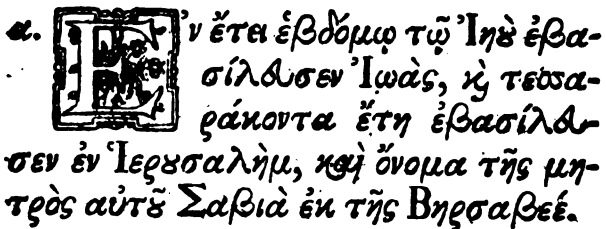 α. Ἐν ἔτει ἑβδόμῳ τῷ Ἰηοὺ ἐβα-
σίλευσεν Ἰωὰς, καὶ τεσσα-
ράκοντα ἔτη ἐβασίλευ-
σεν ἐν Ἱερουσαλὴμ, καὶ ὄνομα τῆς μη-
τρὸς αὐτοῦ Σαβιὰ ἐκ τῆς Βηρσαβεέ.